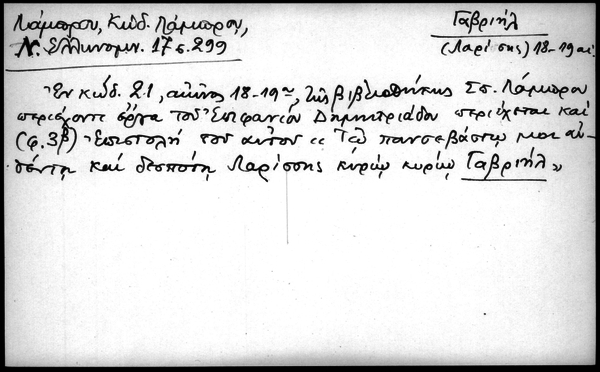 Λάμπρου, Κώδ. Λάμπρου,
Ν. Ελληνομν. 17 σ. 299
Γαβριήλ
(Λαρίσης) 18-19 αἰ.
Ἐν κώδ. 21, αἰῶνος 18-19ου, τῆς βιβλιοθήκης Σπ. Λάμπρου
περιέχοντι ἔργα τοῦ Ἐπιφανίου Δημητριάδου περιέχεται καὶ
(φ. 3β) Ἐπιστολή τοῦ αὐτοῦ «Τῷ πανσεβάστῳ μοι αὐ-
θέντῃ καὶ δεσπότῃ Λαρίσσης κυρίῳ κυρίῳ Γαβριήλ»